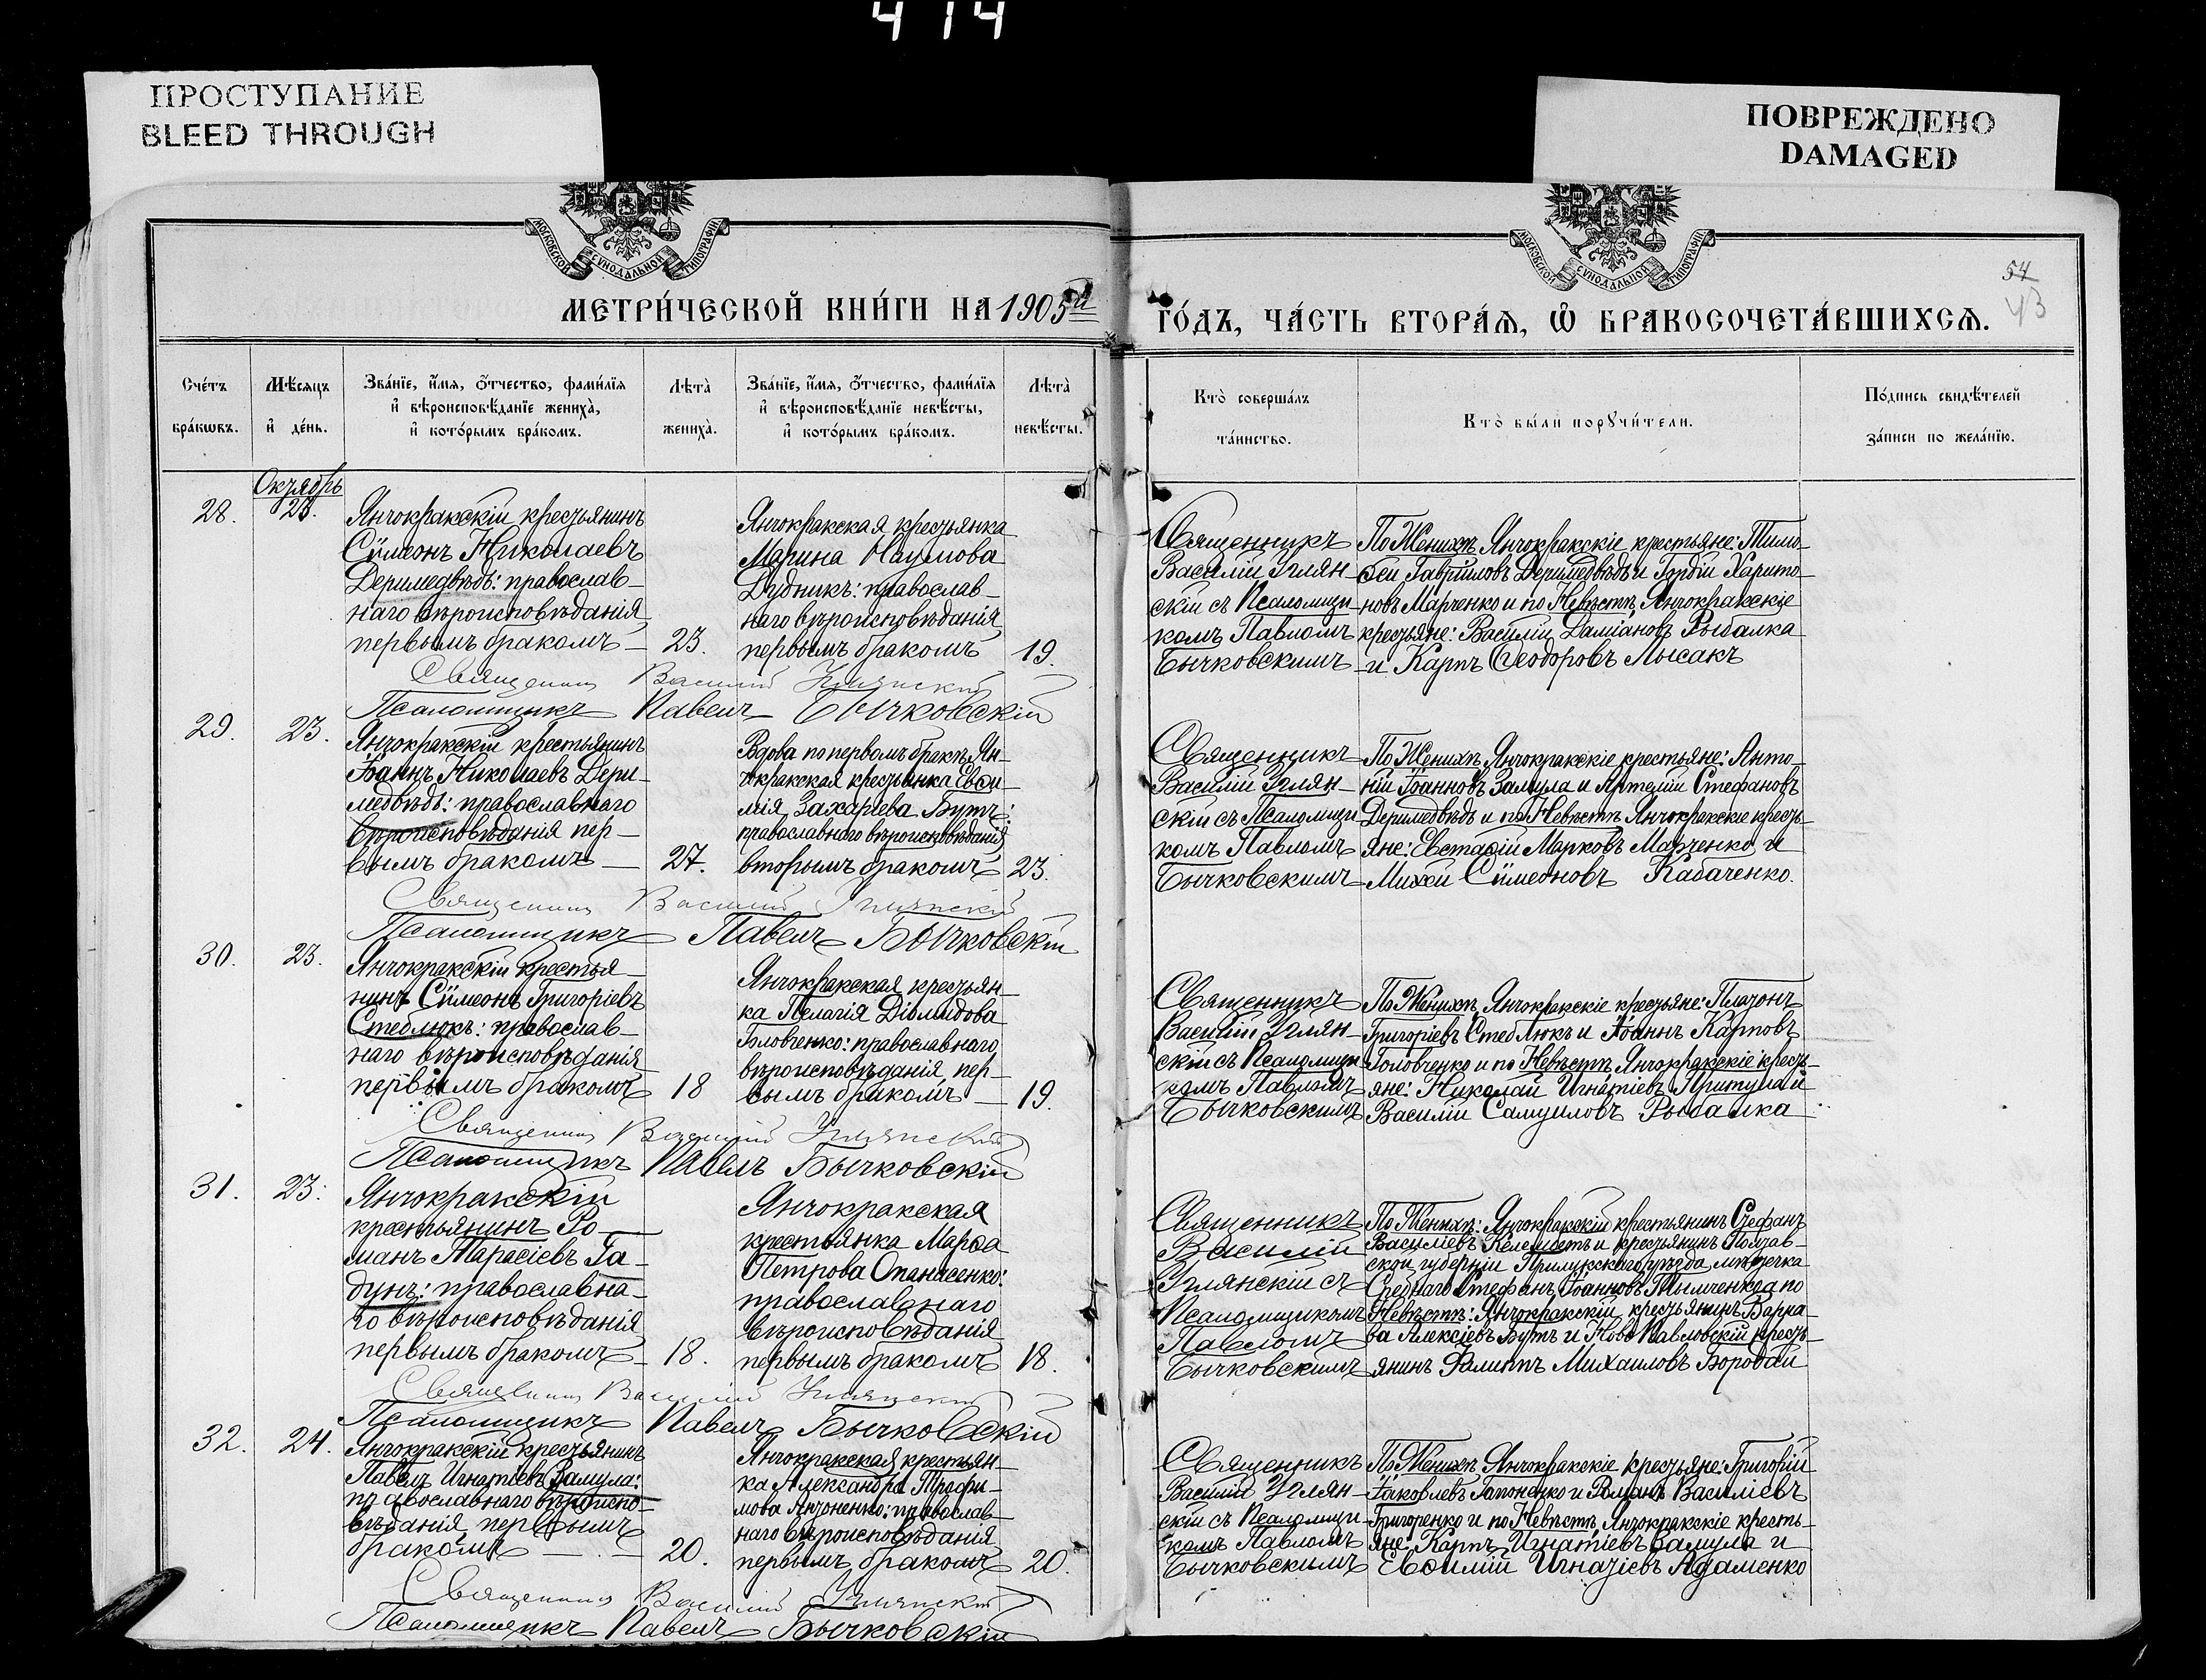 414
ПРОСТУПАНИЕ
BLEED THROUGH
ПОВРЕЖДЕНО
DAMAGED
МОСКОВСКОЙ СѴНОДАЛЬНОЙ ТИПОГРАФІИ
МОСКОВСКОЙ СѴНОДАЛЬНОЙ ТИПОГРАФІИ
54
43
МЕТРИ́ЧЕСКОЙ КНИ́ГИ НА 1905й
ГО́ДЪ, ЧА́СТЬ ВТОРА́Ѧ, Ѽ БРАКОСОЧЕТА́ВШИХСѦ.
Сче́тъ бра́кѡвъ.
Мѣ́сѧцъ и҆ де́нь.
Зва́нїе, и҆́мѧ, ѻ҆́тчество, фами́лїѧ
и҆ вѣроисповѣ́данїе жениха̀,
и҆ кото́рымъ бра́комъ.
Лѣта̀ жениха̀.
Зва́нїе, и҆́мѧ, ѻ҆́тчество, фами́лїѧ
и҆ вѣроисповѣ́данїе невѣ́сты,
и҆ кото́рымъ бра́комъ.
Лѣта̀ невѣ́сты.
Кто̀ соверша́лъ
та́инство.
Кто̀ бы́ли порꙋчи́тели.
По́дпись свидѣ́телей
за́писи по жела́нїю.
Октябрь
28.
23.
Янчокракскій крестьянинъ
Сѷмеонъ Николаевъ
Деримедвѣдь: православ-
наго вѣроисповѣданія
первымъ бракомъ
23.
Янчокракская крестьянка
Марина Наумова
Дудникъ: православ-
наго вѣроисповѣданія
первымъ бракомъ
19.
Священникъ
Василій Углян-
скій съ Псаломщи-
комъ Павломъ
Бычковскимъ
По Женихѣ Янчокракскіе крестьяне: Тимо-
ѳей Гавріиловъ Деримедвѣдь и Гордій Харито-
новъ Марченко и по Невѣстѣ Янчокракскіе
крестьяне: Василій Даміановъ Рыбалка
и Карпъ Ѳеодоровъ Лысакъ
Священникъ Василій Углянскій
Псаломщикъ Павелъ Бычковскій
29.
23.
Янчокракскій крестьянинъ
Іоаннъ Николаевъ Дери-
медвѣдь: православнаго
вѣроисповѣданія пер-
вымъ бракомъ
27.
Вдова по первомъ бракѣ Ян-
чокракская крестьянка Евѳи-
мія Захаріева Бутъ:
православнаго вѣроисповѣданія
вторымъ бракомъ
23.
Священникъ
Василій Углян-
скій съ Псаломщи-
комъ Павломъ
Бычковскимъ
По Женихѣ Янчокракскіе крестьяне: Анто-
ній Іоанновъ Замула и Артемій Стефановъ
Деримедвѣдь и по Невѣстѣ Янчокракскіе кресть-
яне: Евстафій Марковъ Марченко и
Михей Сѷмеоновъ Кабаченко.
Священникъ Василій Углянскій
Псаломщикъ Павелъ Бычковскій
30.
23.
Янчокракскій крестья-
нинъ Сѷмеонъ Григоріевъ
Стеблюкъ: православ-
наго вѣроисповѣданія
первымъ бракомъ
18
Янчокракская крестьян-
ка Пелагія Діомидова
Головченко: православнаго
вѣроисповѣданія пер-
вымъ бракомъ
19.
Священникъ
Василій Углян-
скій съ Псаломщи-
комъ Павломъ
Бычковскимъ
По Женихѣ Янчокракскіе крестьяне: Платонъ
Григоріевъ Стеблюкъ и Іоаннъ Карповъ
Головченко и по Невѣстѣ Янчокракскіе кресть-
яне: Николай Игнатіевъ Притула и
Василій Самуиловъ Рыбалка
Священникъ Василій Углянскій
Псаломщикъ Павелъ Бычковскій
31.
23.
Янчокракскій
крестьянинъ Ро-
манъ Тарасіевъ Га-
дунъ: православна-
го вѣроисповѣданія
первымъ бракомъ
18.
Янчокракская
крестьянка Марѳа
Петрова Опанасенко:
православнаго
вѣроисповѣданія
первымъ бракомъ
18.
Священникъ
Василій
Углянскій съ
Псаломщикомъ
Павломъ
Бычковскимъ
По Женихѣ: Янчокракскій крестьянинъ Стефанъ
Василіевъ Келембетъ и крестьянинъ Полтав-
ской губерніи Прилукскаго уѣзда мѣстечка
Сребнаго Стефанъ Іоанновъ Тымченко а по
Невѣстѣ: Янчокракскій крестьянинъ Варва-
ва Алексіевъ Бутъ и Ново Павловскій кресть-
янинъ Филиппъ Михаиловъ Бородай
Священникъ Василій Углянскій
Псаломщикъ Павелъ Бычковскій
32.
24.
Янчокракскій крестьянинъ
Павелъ Игнатіевъ Замула:
православнаго вѣроиспо-
вѣданія первымъ
бракомъ
20.
Янчокракская крестьян-
ка Александра Трофи-
мова Антоненко: православ-
наго вѣроисповѣданія
первымъ бракомъ
20.
Священникъ
Василій Углян-
скій съ Псаломщи-
комъ Павломъ
Бычковскимъ
По Женихѣ Янчокракскіе крестьяне: Григорій
Іаковлевъ Гапоненко и Романъ Василіевъ
Григоренко и по Невѣстѣ Янчокракскіе кресть-
яне: Карпъ Игнатіевъ Замула и
Евѳимій Игнатіевъ Адаменко
Священникъ Василій Углянскій
Псаломщикъ Павелъ Бычковскій